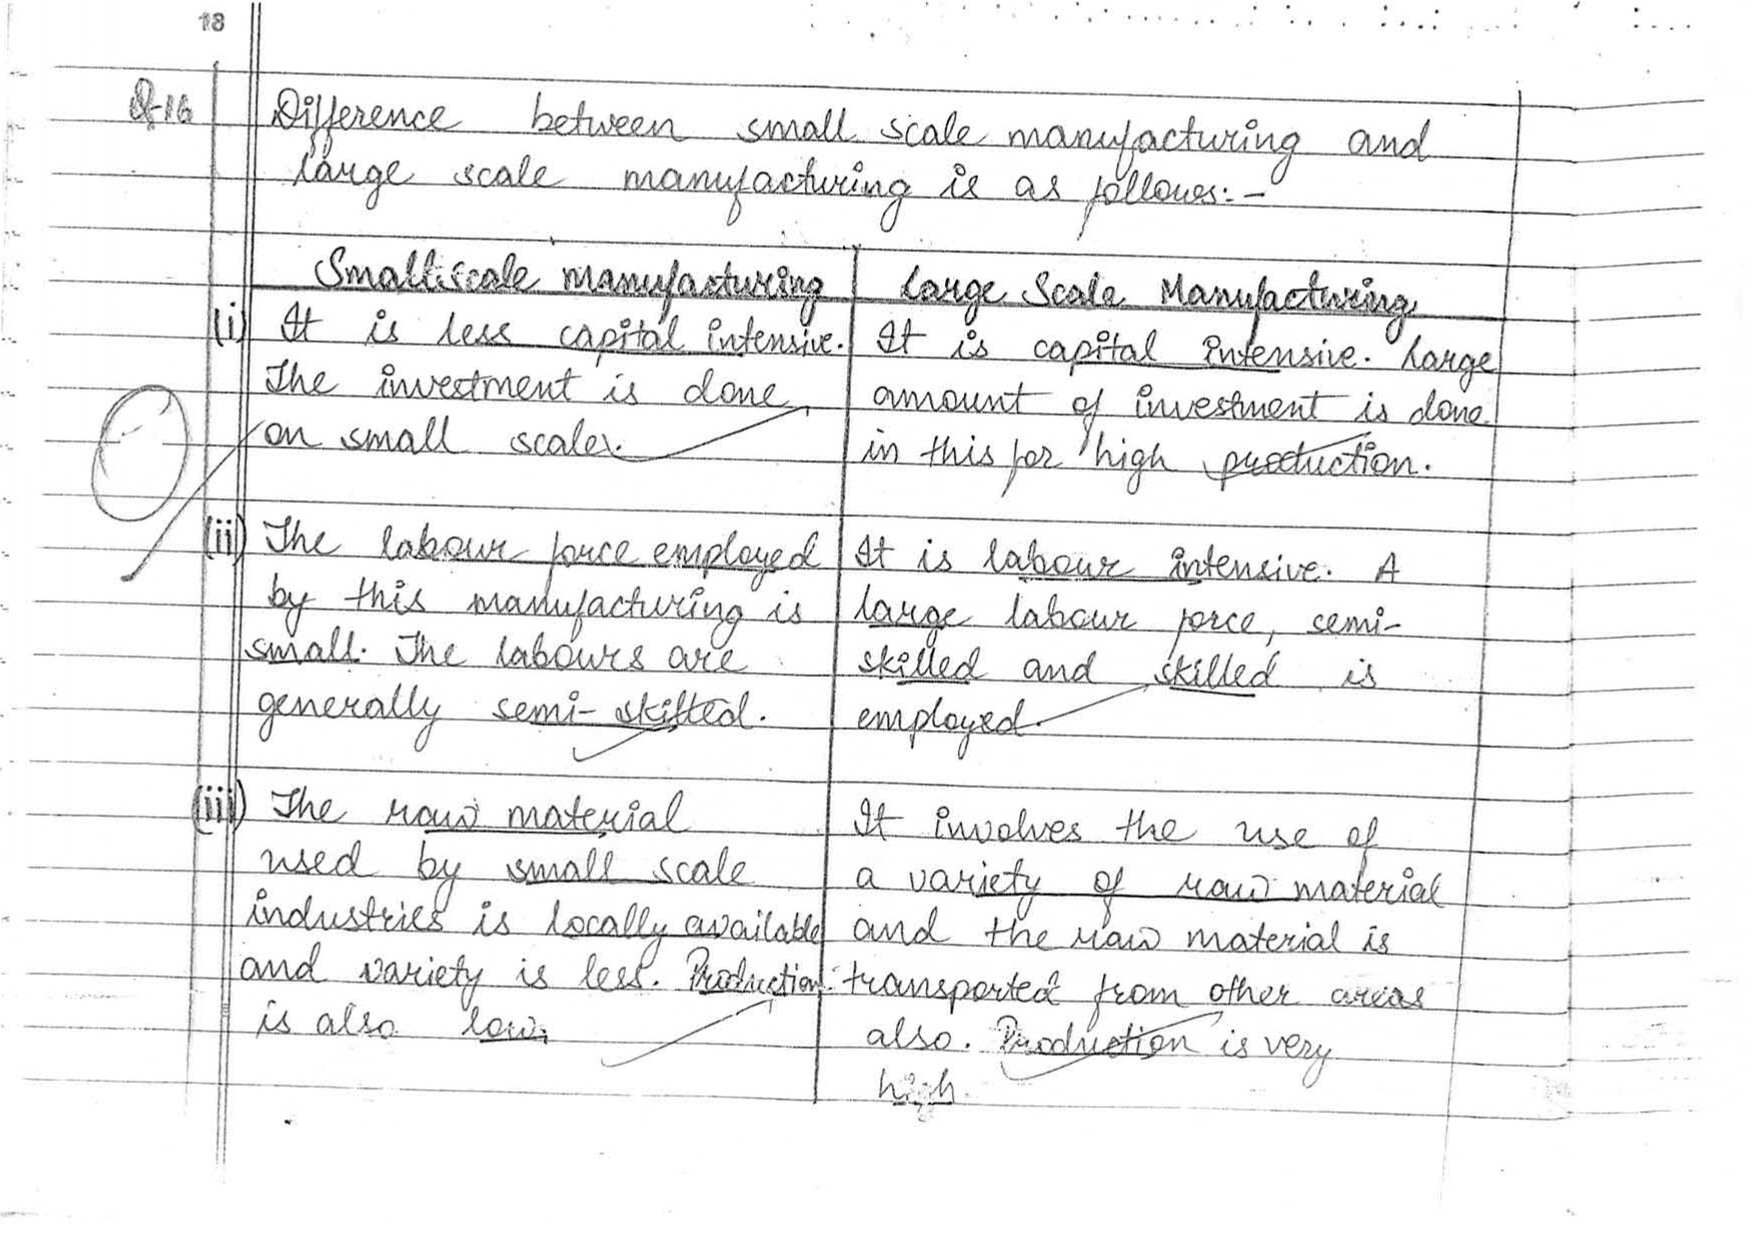 18
Q-16
Difference between small scale manufacturing and
large scale manufacturing is as follows:-
Small scale manufacturing
Large Scale Manufacturing
(i) It is less capital intensive.
The investment is done
on small scale.
It is capital intensive. Large
amount of investment is done
in this for high production.
(ii) The labour force employed
by this manufacturing is
small. The labours are
generally semi-skilled.
It is labour intensive. A
large labour force, semi-
skilled and skilled is
employed.
(iii) The raw material
used by small scale
industries is locally available
and variety is less. Production
is also low.
It involves the use of
a variety of raw material
and the raw material is
transported from other areas
also. Production is very
high.